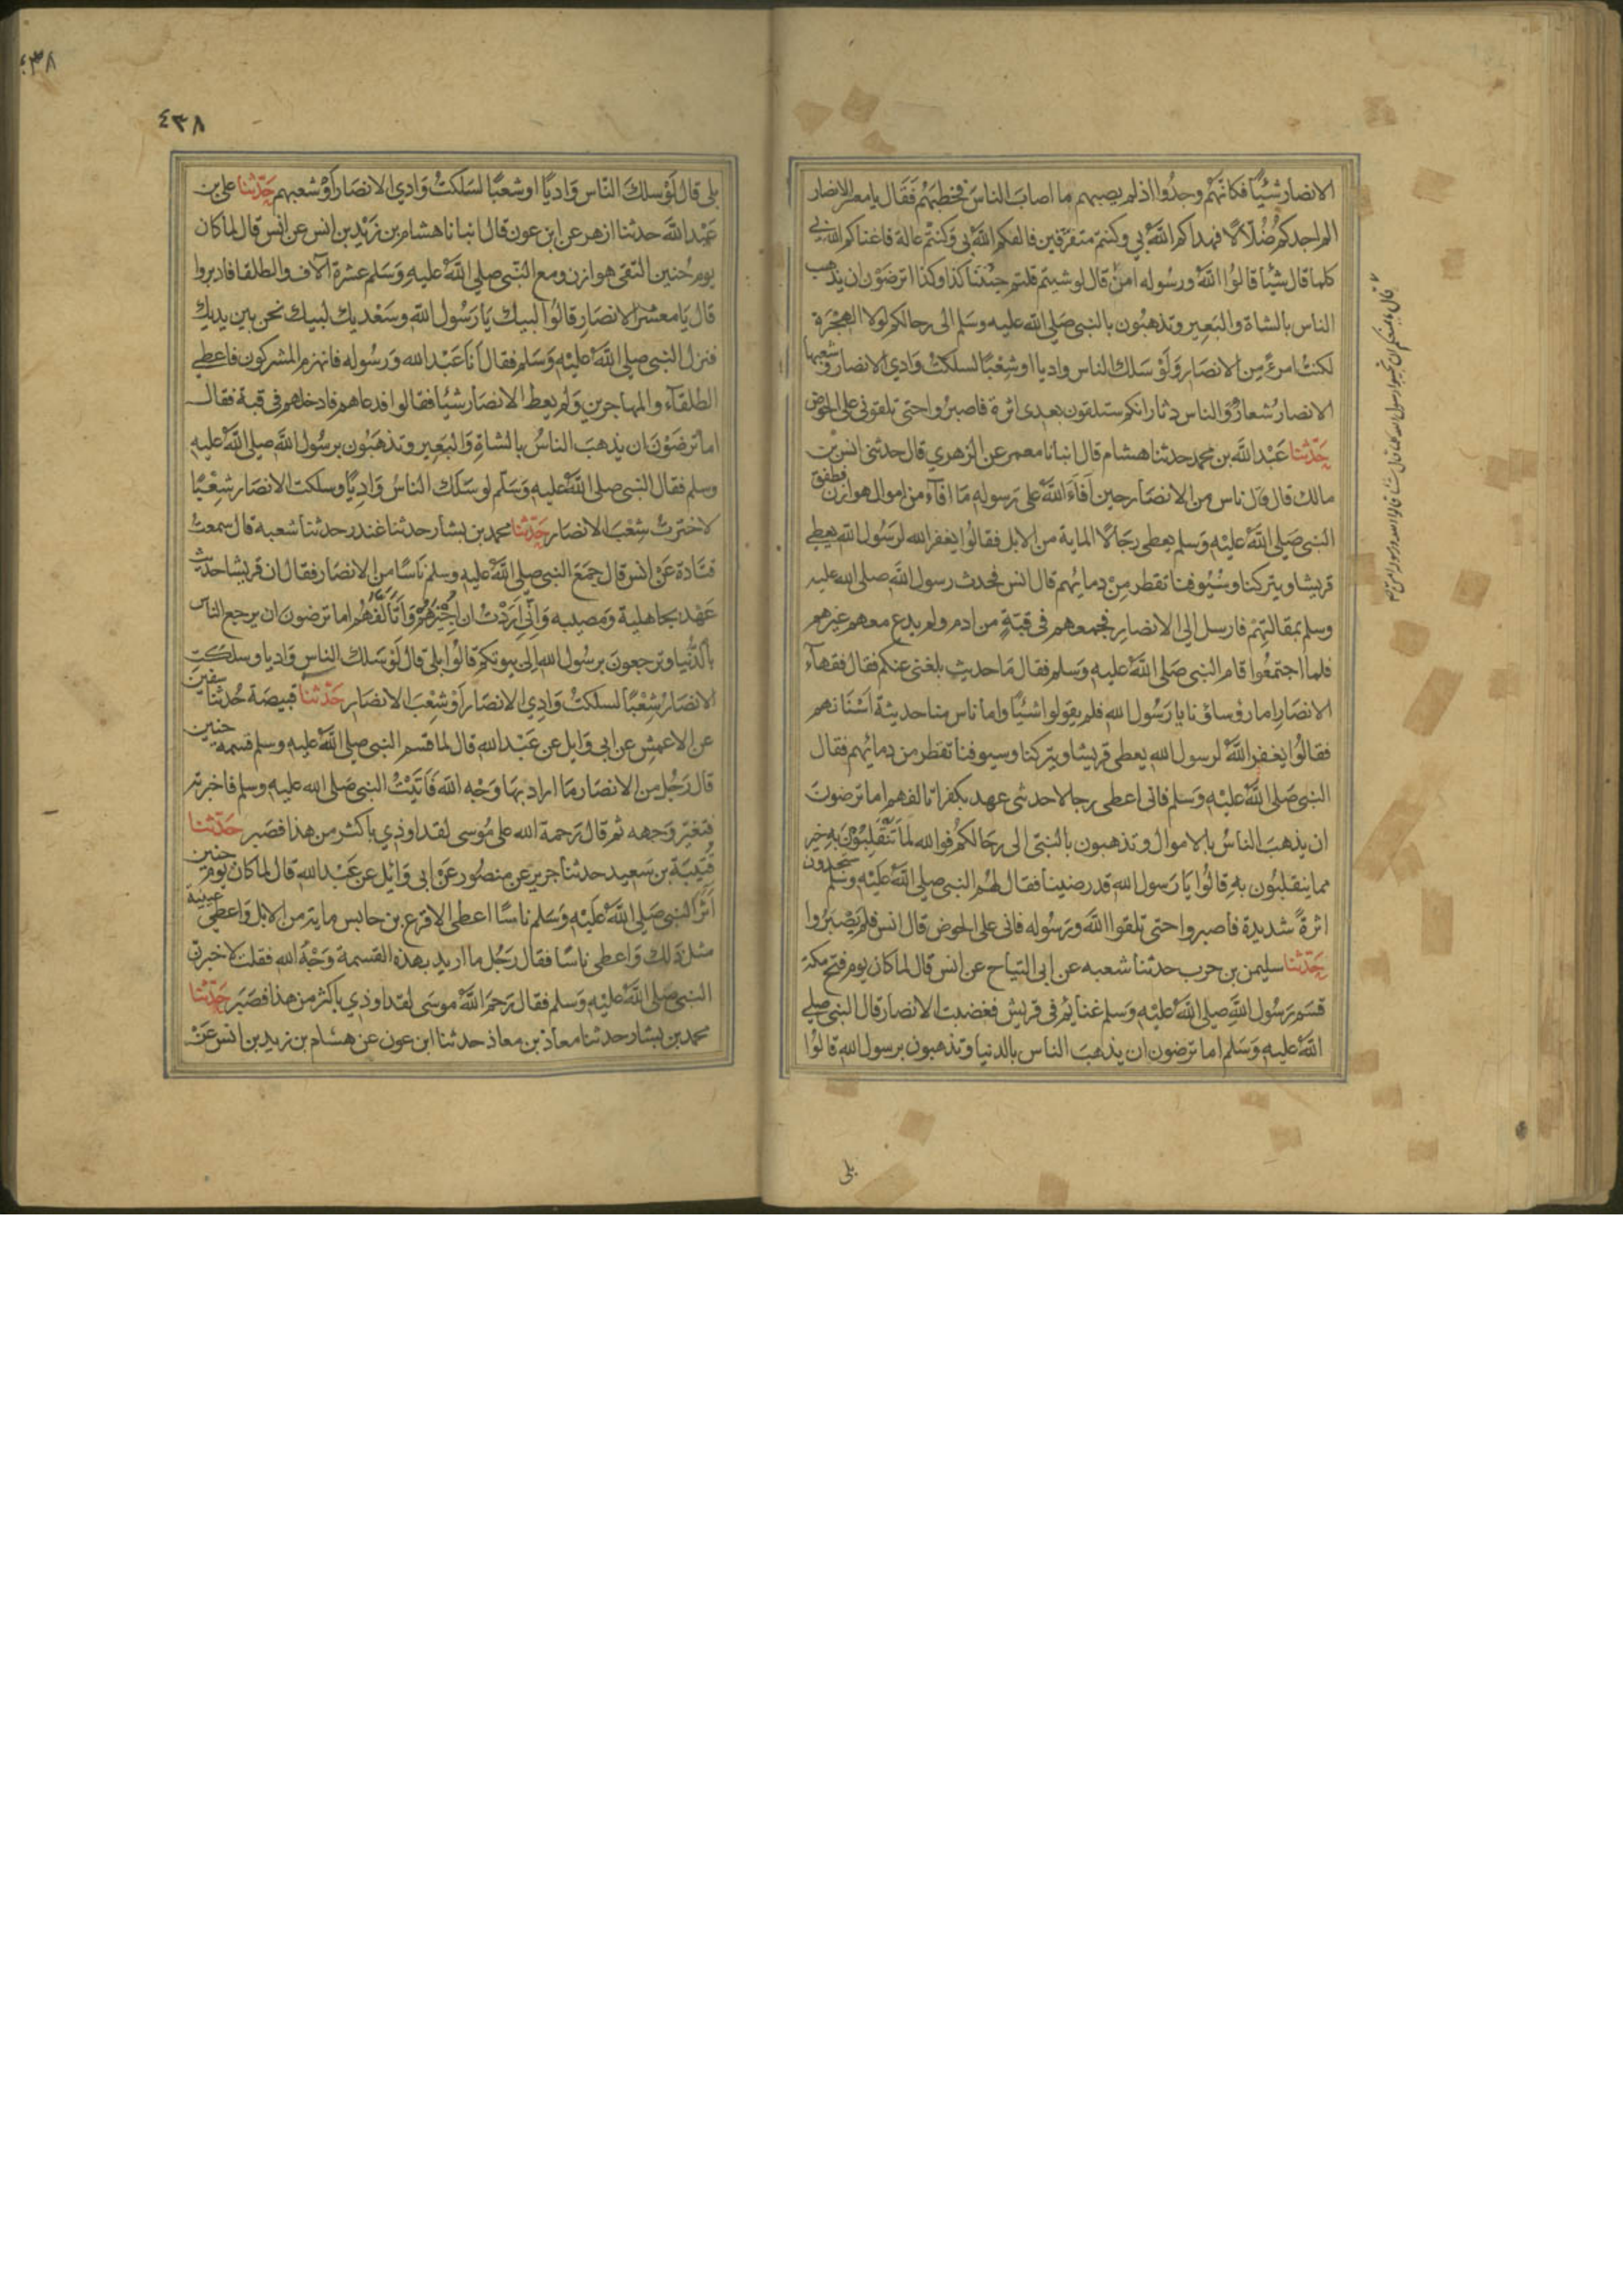 الانصار شيئا فكانهم وجدوا اذ لم يصبهم ما اصاب الناس فخطبهم فقال يا معشر الانصار
الم اجدكم ضلالا فهداكم الله بي وكنتم متفرقين فالفكم الله بي وكنتم عالة فاغناكم الله بي
كلما قال شيئا قالوا الله ورسوله امن قال لو شيتم قلتم جئتنا كذا وكذا اترضون ان يذهب
الناس بالشاة والبعير وتذهبون بالنبي صلى الله عليه وسلم الى رحالكم لولا الهجرة
لكنت امرء من الانصار ولو سلك الناس واديا او شعبا لسلكت وادي الانصار وشعبها
الانصار شعار والناس دثار انكم ستلقون بعدي اثرة فاصبروا حتى تلقوني على الحوض
حدثنا عبد الله بن محمد حدثنا هشام قال انبانا معمر عن الزهري قال حدثني انس بن
مالك قال قال ناس من الانصار حين افاء الله على رسوله ما افاء من اموال هوازن فطفق
النبي صلى الله عليه وسلم يعطي رجالا الماية من الابل فقالوا يغفر الله لرسول الله يعطي
قريشا ويتركنا وسيوفنا تقطر من دمائهم قال انس فحدث رسول الله صلى الله عليه
وسلم بمقالتهم فارسل الى الانصار فجمعهم في قبة من ادم ولم يدع معهم غيرهم
فلما اجتمعوا قام النبي صلى الله عليه وسلم فقال ما حديث بلغني عنكم فقال فقهاء
الانصار اما رؤساؤنا يا رسول الله فلم يقولوا شيئا واما ناس منا حديثة اسنانهم
فقالوا يغفر الله لرسول الله يعطي قريشا ويتركنا وسيوفنا تقطر من دمائهم فقال
النبي صلى الله عليه وسلم فاني اعطي رجالا حدثي عهد بكفر اتالفهم اما ترضون
ان يذهب الناس بالاموال وتذهبون بالنبي الى رحالكم فوالله لما تنقلبون به خير
مما ينقلبون به قالوا يا رسول الله قد رضينا فقال لهم النبي صلى الله عليه وسلم ستجدون
اثرة شديدة فاصبروا حتى تلقوا الله ورسوله فاني على الحوض قال انس فلم يصبروا
حدثنا سليمن بن حرب حدثنا شعبه عن ابي التياح عن انس قال لما كان يوم فتح مكة
قسم رسول الله صلى الله عليه وسلم غنايم في قريش فغضبت الانصار قال النبي صلى
الله عليه وسلم اما ترضون ان يذهب الناس بالدنيا وتذهبون برسول الله قالوا
بلى
٤٣٨
٤٣٨
بلى قال لو سلك الناس واديا او شعبا لسلكت وادي الانصار او شعبهم حدثنا علي بن
عبد الله حدثنا ازهر عن ابن عون قال انبانا هشام بن زيد بن انس عن انس قال لما كان
يوم حنين التقى هوازن ومع النبي صلى الله عليه وسلم عشرة آلاف والطلقا فادبروا
قال يا معشر الانصار قالوا لبيك يا رسول الله وسعديك لبيك نحن بين يديك
فنزل النبي صلى الله عليه وسلم فقال انا عبد الله ورسوله فانهزم المشركون فاعطى
الطلقاء والمهاجرين ولم يعط الانصار شيئا فقالوا فدعاهم فادخلهم في قبة فقال
اما ترضون ان يذهب الناس بالشاة والبعير وتذهبون برسول الله صلى الله عليه
وسلم فقال النبي صلى الله عليه وسلم لو سلك الناس واديا وسلكت الانصار شعبا
لاخترت شعب الانصار حدثنا محمد بن بشار حدثنا غندر حدثنا شعبه قال سمعت
قتادة عن انس قال جمع النبي صلى الله عليه وسلم ناسا من الانصار فقال ان قريشا حديث
عهد بجاهلية ومصيبه واني اردت ان اجبرهم واتالفهم اما ترضون ان يرجع الناس
بالدنيا وترجعون برسول الله الى بيوتكم قالوا بلى قال لو سلك الناس واديا وسلكت
الانصار شعبا لسلكت وادي الانصار او شعب الانصار حدثنا قبيصة حدثنا سفين
عن الاعمش عن ابي وايل عن عبد الله قال لما قسم النبي صلى الله عليه وسلم قسمة حنين
قال رجل من الانصار ما اراد بها وجه الله فاتيت النبي صلى الله عليه وسلم فاخبرته
فتغير وجهه ثم قال رحمة الله على موسى لقد اوذي باكثر من هذا فصبر حدثنا
قتيبة بن سعيد حدثنا جرير عن منصور عن ابي وائل عن عبد الله قال لما كان يوم حنين
آثر النبي صلى الله عليه وسلم ناسا اعطى الاقرع بن حابس ماية من الابل واعطى عيينة
مثل ذلك واعطى ناسا فقال رجل ما اريد بهذه القسمة وجه الله فقلت لاخبرن
النبي صلى الله عليه وسلم فقال رحم الله موسى لقد اوذي باكثر من هذا فصبر حدثنا
محمد بن بشار حدثنا معاذ بن معاذ حدثنا ابن عون عن هشام بن زيد بن انس عن